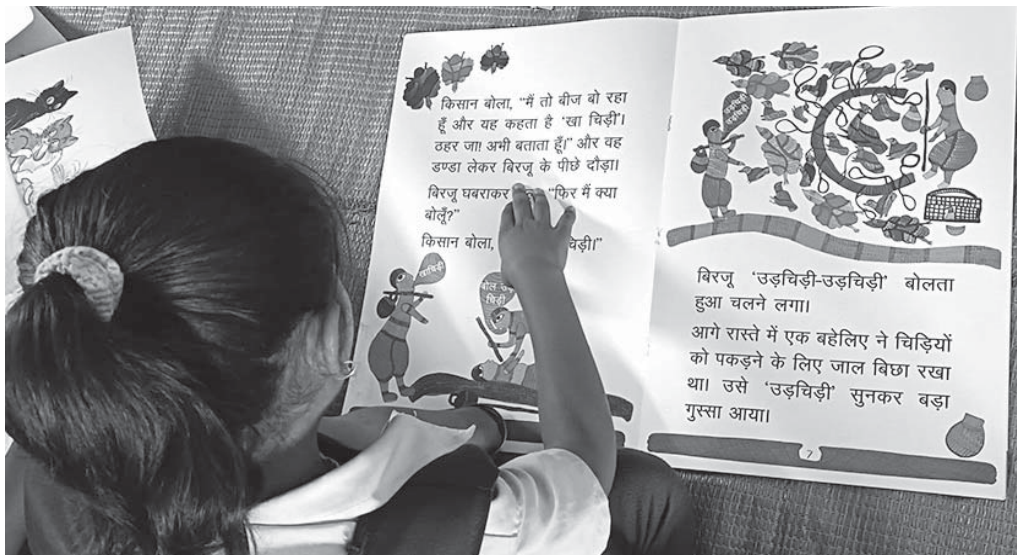 किसान बोला, “मैं तो बीज बो रहा
हूँ और यह कहता है ‘खा चिड़ी’।
ठहर जा! अभी बताता हूँ।” और वह
डण्डा लेकर बिरजू के पीछे दौड़ा।
बिरजू घबराकर “फिर मैं क्या
बोलूँ?”
किसान बोला, चिड़ी।”
खाचिड़ी
बोल
चिड़ी
उड़चिड़ी
उड़चिड़ी
बिरजू ‘उड़चिड़ी-उड़चिड़ी’ बोलता
हुआ चलने लगा।
आगे रास्ते में एक बहेलिए ने चिड़ियों
को पकड़ने के लिए जाल बिछा रखा
था। उसे ‘उड़चिड़ी’ सुनकर बड़ा
गुस्सा आया।
7